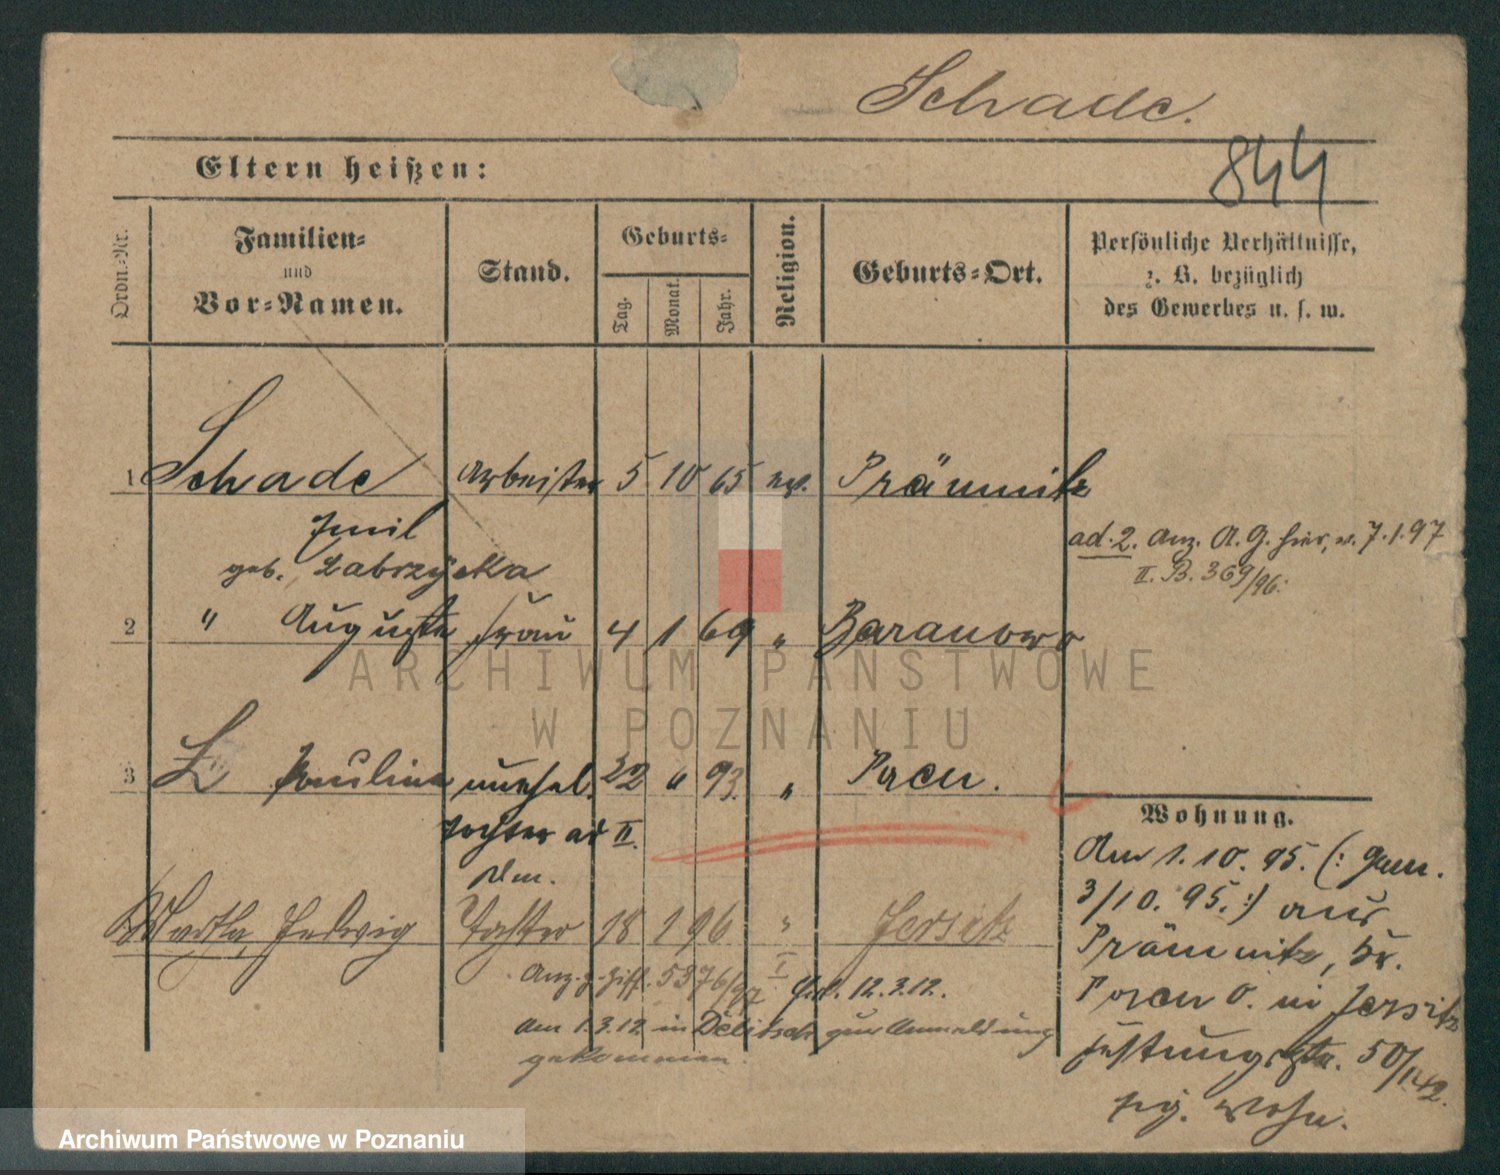 Schade.
844
Eltern heißen:
Ordn.-Nr.
Familien-
und
Vor-Namen.
Stand.
Geburts-
Tag.
Monat.
Jahr.
Religion.
Geburts-Ort.
Persönliche Verhältnisse,
z. B. bezüglich
des Gewerbes u. s. w.
1 Schade Arbeiter 5 10 65 ev. Prämnitz
Emil
ad. 2. Anz. A. G. hier, v. 7.1.97
II. B. 369/96.
geb. Labrzycka
2 " Auguste Frau 4 1 69 " Baranowo
ARCHIWUM PAŃSTWOWE
W POZNANIU
3 Pauline unehel. 22 " 93. " Posen.
Tochter ad II.
Wohnung.
Am 1.10.95. (: Gem.
3/10.95. :) aus
Prämnitz, Kr.
Posen O. in Jersitz
50/
Wohn.
Martha, Hedwig Tochter 18 1 96 " Jersitz
5376/97
12.3.12.
Am 1.3.12 in Delitsch zur Anmeldung
gekommen.
Archiwum Państwowe w Poznaniu